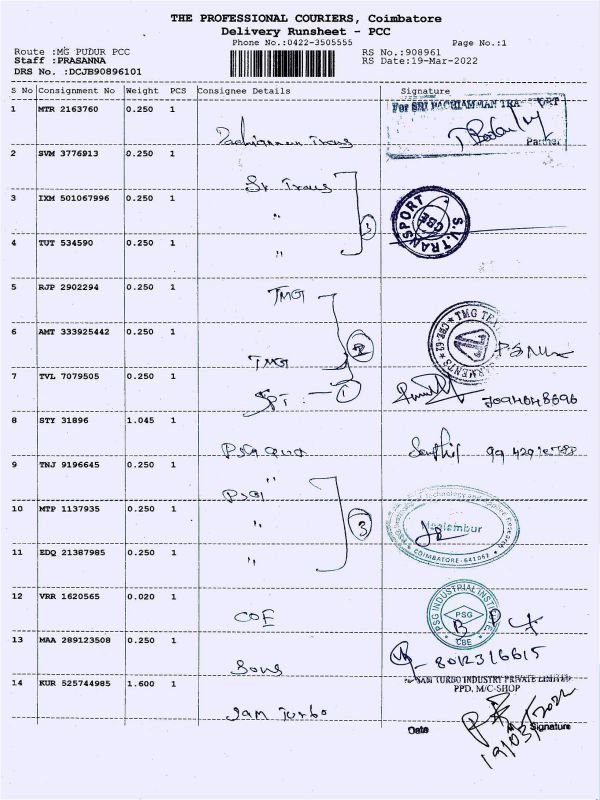 THE PROFESSIONAL COURIERS, Coimbatore
Delivery Runsheet - PCC
Phone No.:0422-3505555
Page No.:1
Route :MG PUDUR PCC
RS No.:908961
Staff :PRASANNA
RS Date:19-Mar-2022
DRS No. :DCJB90896101
S No Consignment No Weight PCS Consignee Details Signature
1 MTR 2163760 0.250 1
For SRI PACHIAMMAN
Partner
2 SVM 3776913 0.250 1
3 IXM 501067996 0.250 1 " 3
S.V. TRANSPORT CBE
4 TUT 534590 0.250 1 "
5 RJP 2902294 0.250 1 TMG
6 AMT 333925442 0.250 1 TMG
TMG
7 TVL 7079505 0.250 1 SPT 1
8 STY 31896 1.045 1 PSG
9 TNJ 9196645 0.250 1 PSG "
10 MTP 1137935 0.250 1 " 3
Technology and Applied Research
Neelambur
COIMBATORE-641062
11 EDQ 21387985 0.250 1 "
12 VRR 1620565 0.020 1 COE
PSG INDUSTRIAL INSTITUTE
PSG
CBE
13 MAA 289123508 0.250 1 Sons
8012316615
14 KUR 525744985 1.600 1 Jam Turbo
JAM TURBO INDUSTRY PRIVATE LIMITED
PPD, M/C-SHOP
Date Signature